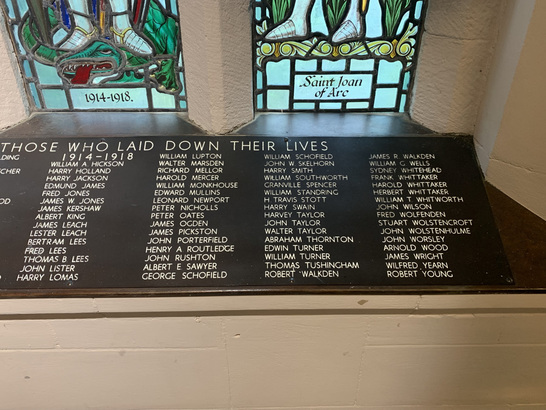 1914-1918.
Saint Joan
of Arc
THOSE WHO LAID DOWN THEIR LIVES
1914-1918
WILLIAM A HICKSON
HARRY HOLLAND
HARRY JACKSON
EDMUND JAMES
FRED JONES
JAMES W. JONES
JAMES KERSHAW
ALBERT KING
JAMES LEACH
LESTER LEACH
BERTRAM LEES
FRED LEES
THOMAS B LEES
JOHN LISTER
HARRY LOMAS
WILLIAM LUPTON
WALTER MARSDEN
RICHARD MELLOR
HAROLD MERCER
WILLIAM MONKHOUSE
EDWARD MULLINS
LEONARD NEWPORT
PETER NICHOLLS
PETER OATES
JAMES OGDEN
JAMES PICKSTON
JOHN PORTERFIELD
HENRY A ROUTLEDGE
JOHN RUSHTON
ALBERT E SAWYER
GEORGE SCHOFIELD
WILLIAM SCHOFIELD
JOHN W. SKELHORN
HARRY SMITH
WILLIAM SOUTHWORTH
GRANVILLE SPENCER
WILLIAM STANDRING
H. TRAVIS STOTT
HARRY SWAIN
HARVEY TAYLOR
JOHN TAYLOR
WALTER TAYLOR
ABRAHAM THORNTON
EDWIN TURNER
WILLIAM TURNER
THOMAS TUSHINGHAM
ROBERT WALKDEN
JAMES R. WALKDEN
WILLIAM G WELLS
SYDNEY WHITEHEAD
FRANK WHITTAKER
HAROLD WHITTAKER
HERBERT WHITTAKER
WILLIAM T WHITWORTH
JOHN WILSON
FRED WOLFENDEN
STUART WOLSTENCROFT
JOHN WOLSTENHULME
JOHN WORSLEY
ARNOLD WOOD
JAMES WRIGHT
WILFRED YEARN
ROBERT YOUNG